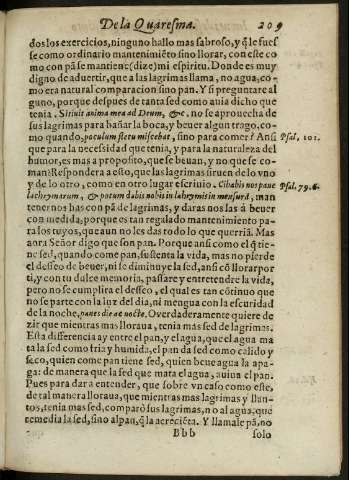 De la Quaresma. 209
dos los exercicios, ninguno hallo mas sabroso, y q̃ le fuess
se como ordinario mantenimiẽto sino llorar, con este co
mo con pã se mantiene (dize) mi espiritu. Donde es muy
digno de aduertir, que a las lagrimas llama, no agua, co-
mo era natural comparacion sino pan. Y si preguntare al
guno, porque despues de tanta sed como auia dicho que
tenia. Sitiuit anima mea ad Deum, &c. no se aprouecha de
sus lagrimas para bañar la boca, y beuer algun trago, co-
mo quando, poculum fletu miscebat, sino para comer? Ansi
que para la necessidad que tenia, y para la naturaleza del
humor, es mas a proposito, que se beuan, y no que se co-
man: Respondera a esto, que las lagrimas siruen de lo vno
y de lo otro, como en otro lugar escriuio. Cibabis nos pane
lachrymarum, & potum dabis nobis in lachrymis in mensura, man
tenernos has con pã de lagrimas, y daras nos las à beuer
con medida, porque es tan regalado mantenimiento pa-
ra los tuyos, que aun no les das todo lo que querriã. Mas
aora Señor digo que son pan. Porque ansi como el q̃ tie-
ne sed, quando come pan, sustenta la vida, mas no pierde
el desseo de beuer, ni se diminuye la sed, ansi cõ llorar por
ti, y con tu dulce memoria, passare y entretendre la vida,
pero no se cumplira el desseo, el qual es tan cõtinuo que
no se parte con la luz del dia, ni mengua con la escuridad
de la noche, panes die ac nocte. O verdaderamente quiere de
zir que mientras mas lloraua, tenia mas sed de lagrimas.
Esta differencia ay entre el pan, y el agua, que el agua ma
ta la sed como fria y humida, el pan da sed como calido y
seco, quien come pan tiene sed, quien beue agua la apa-
ga: de manera que la sed que mata el agua, auiua el pan.
Pues para dar a entender, que sobre vn caso como este,
de tal manera lloraua, que mientras mas lagrimas y llan-
tos, tenia mas sed, comparò sus lagrimas, no al agua, que
remedia la sed, sino al pan, q̃ la acreciẽta. Y llamale pã, no
Bbb solo
Psal. 101.
Psal. 79. 6.